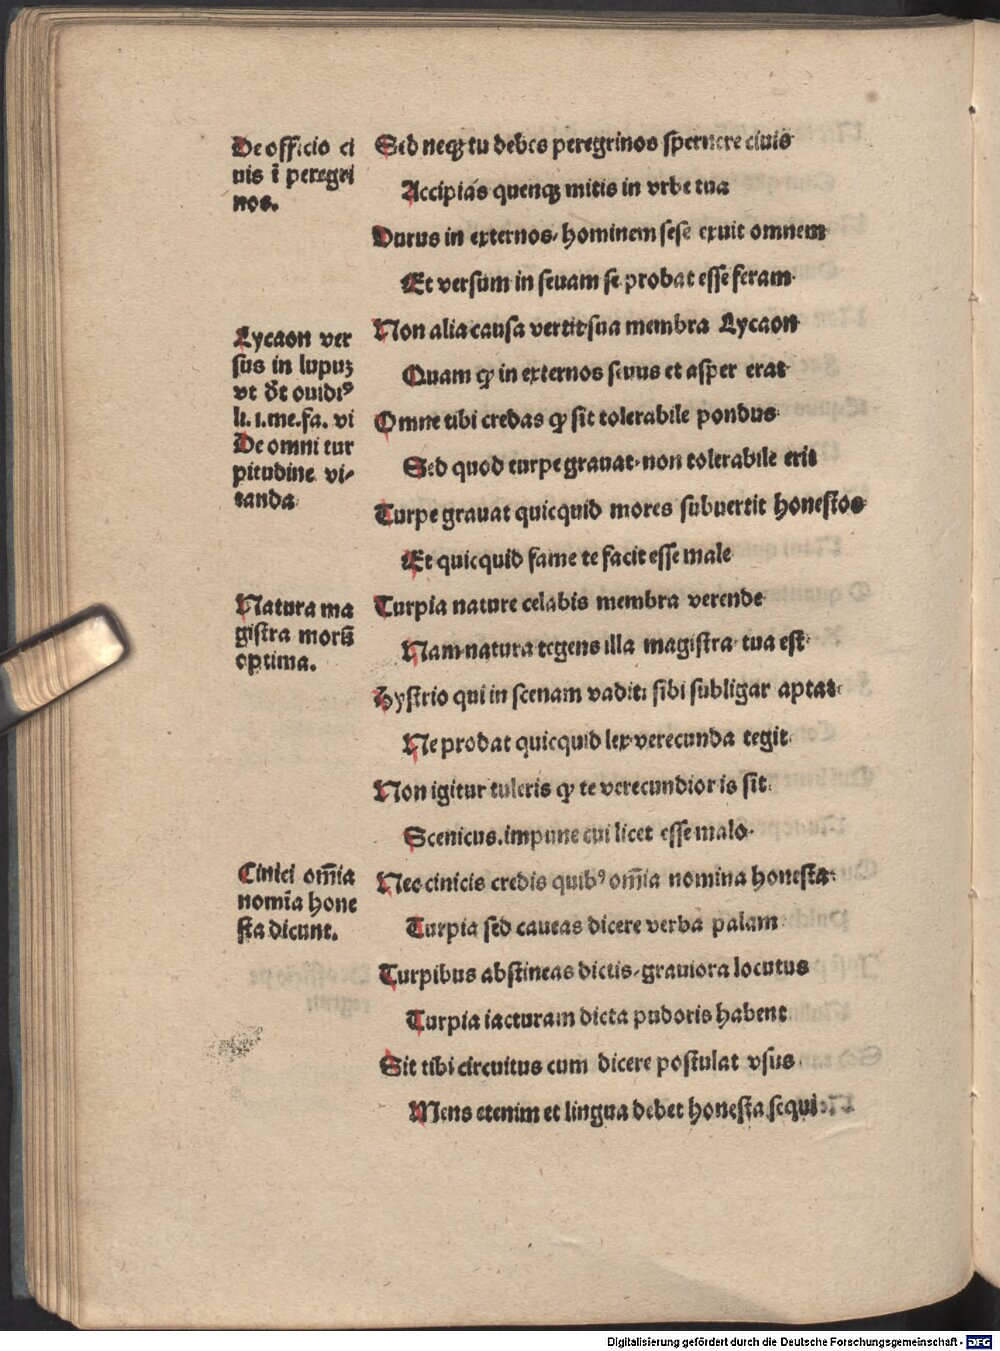 De officio ci
uis ī peregri
nos.
Sed neqꝫ tu debes peregrinos spernere ciuis
Accipias quenqꝫ mitis in vrbe tua
Durus in externos, hominem sese exuit omnem
Et versum in seuam se probat esse feram
Lycaon ver
sus in lupuꝫ
vt dt̄ ouidiꝰ
li. 1. me. fa. vi
Non alia causa vertit sua membra Lycaon
Quam ꝙ in externos seuus et asper erat
Omne tibi credas ꝙ sit tolerabile pondus
De omni tur
pitudine vi-
tanda
Sed quod turpe grauat, non tolerabile erit
Turpe grauat quicquid mores subuertit honestos
Et quicquid fame te facit esse male
Natura ma
gistra morū
optima.
Turpia nature celabis membra verende
Nam natura tegens illa magistra tua est
Hystrio qui in scenam vadit: sibi subligar aptat
Ne prodat quicquid lex verecunda tegit
Non igitur tuleris ꝙ te verecundior is sit
Scenicus. impune cui licet esse malo
Cinici om̄ia
nomīa hone
sta dicunt.
Nec cinicis credis quibꝰ om̄ia nomina honesta
Turpia sed caueas dicere verba palam
Turpibus abstineas dictis, grauiora locutus
Turpia iacturam dicta pudoris habent
Sit tibi circuitus cum dicere postulat vsus
Mens etenim et lingua debet honesta sequi
Digitalisierung gefördert durch die Deutsche Forschungsgemeinschaft - DFG